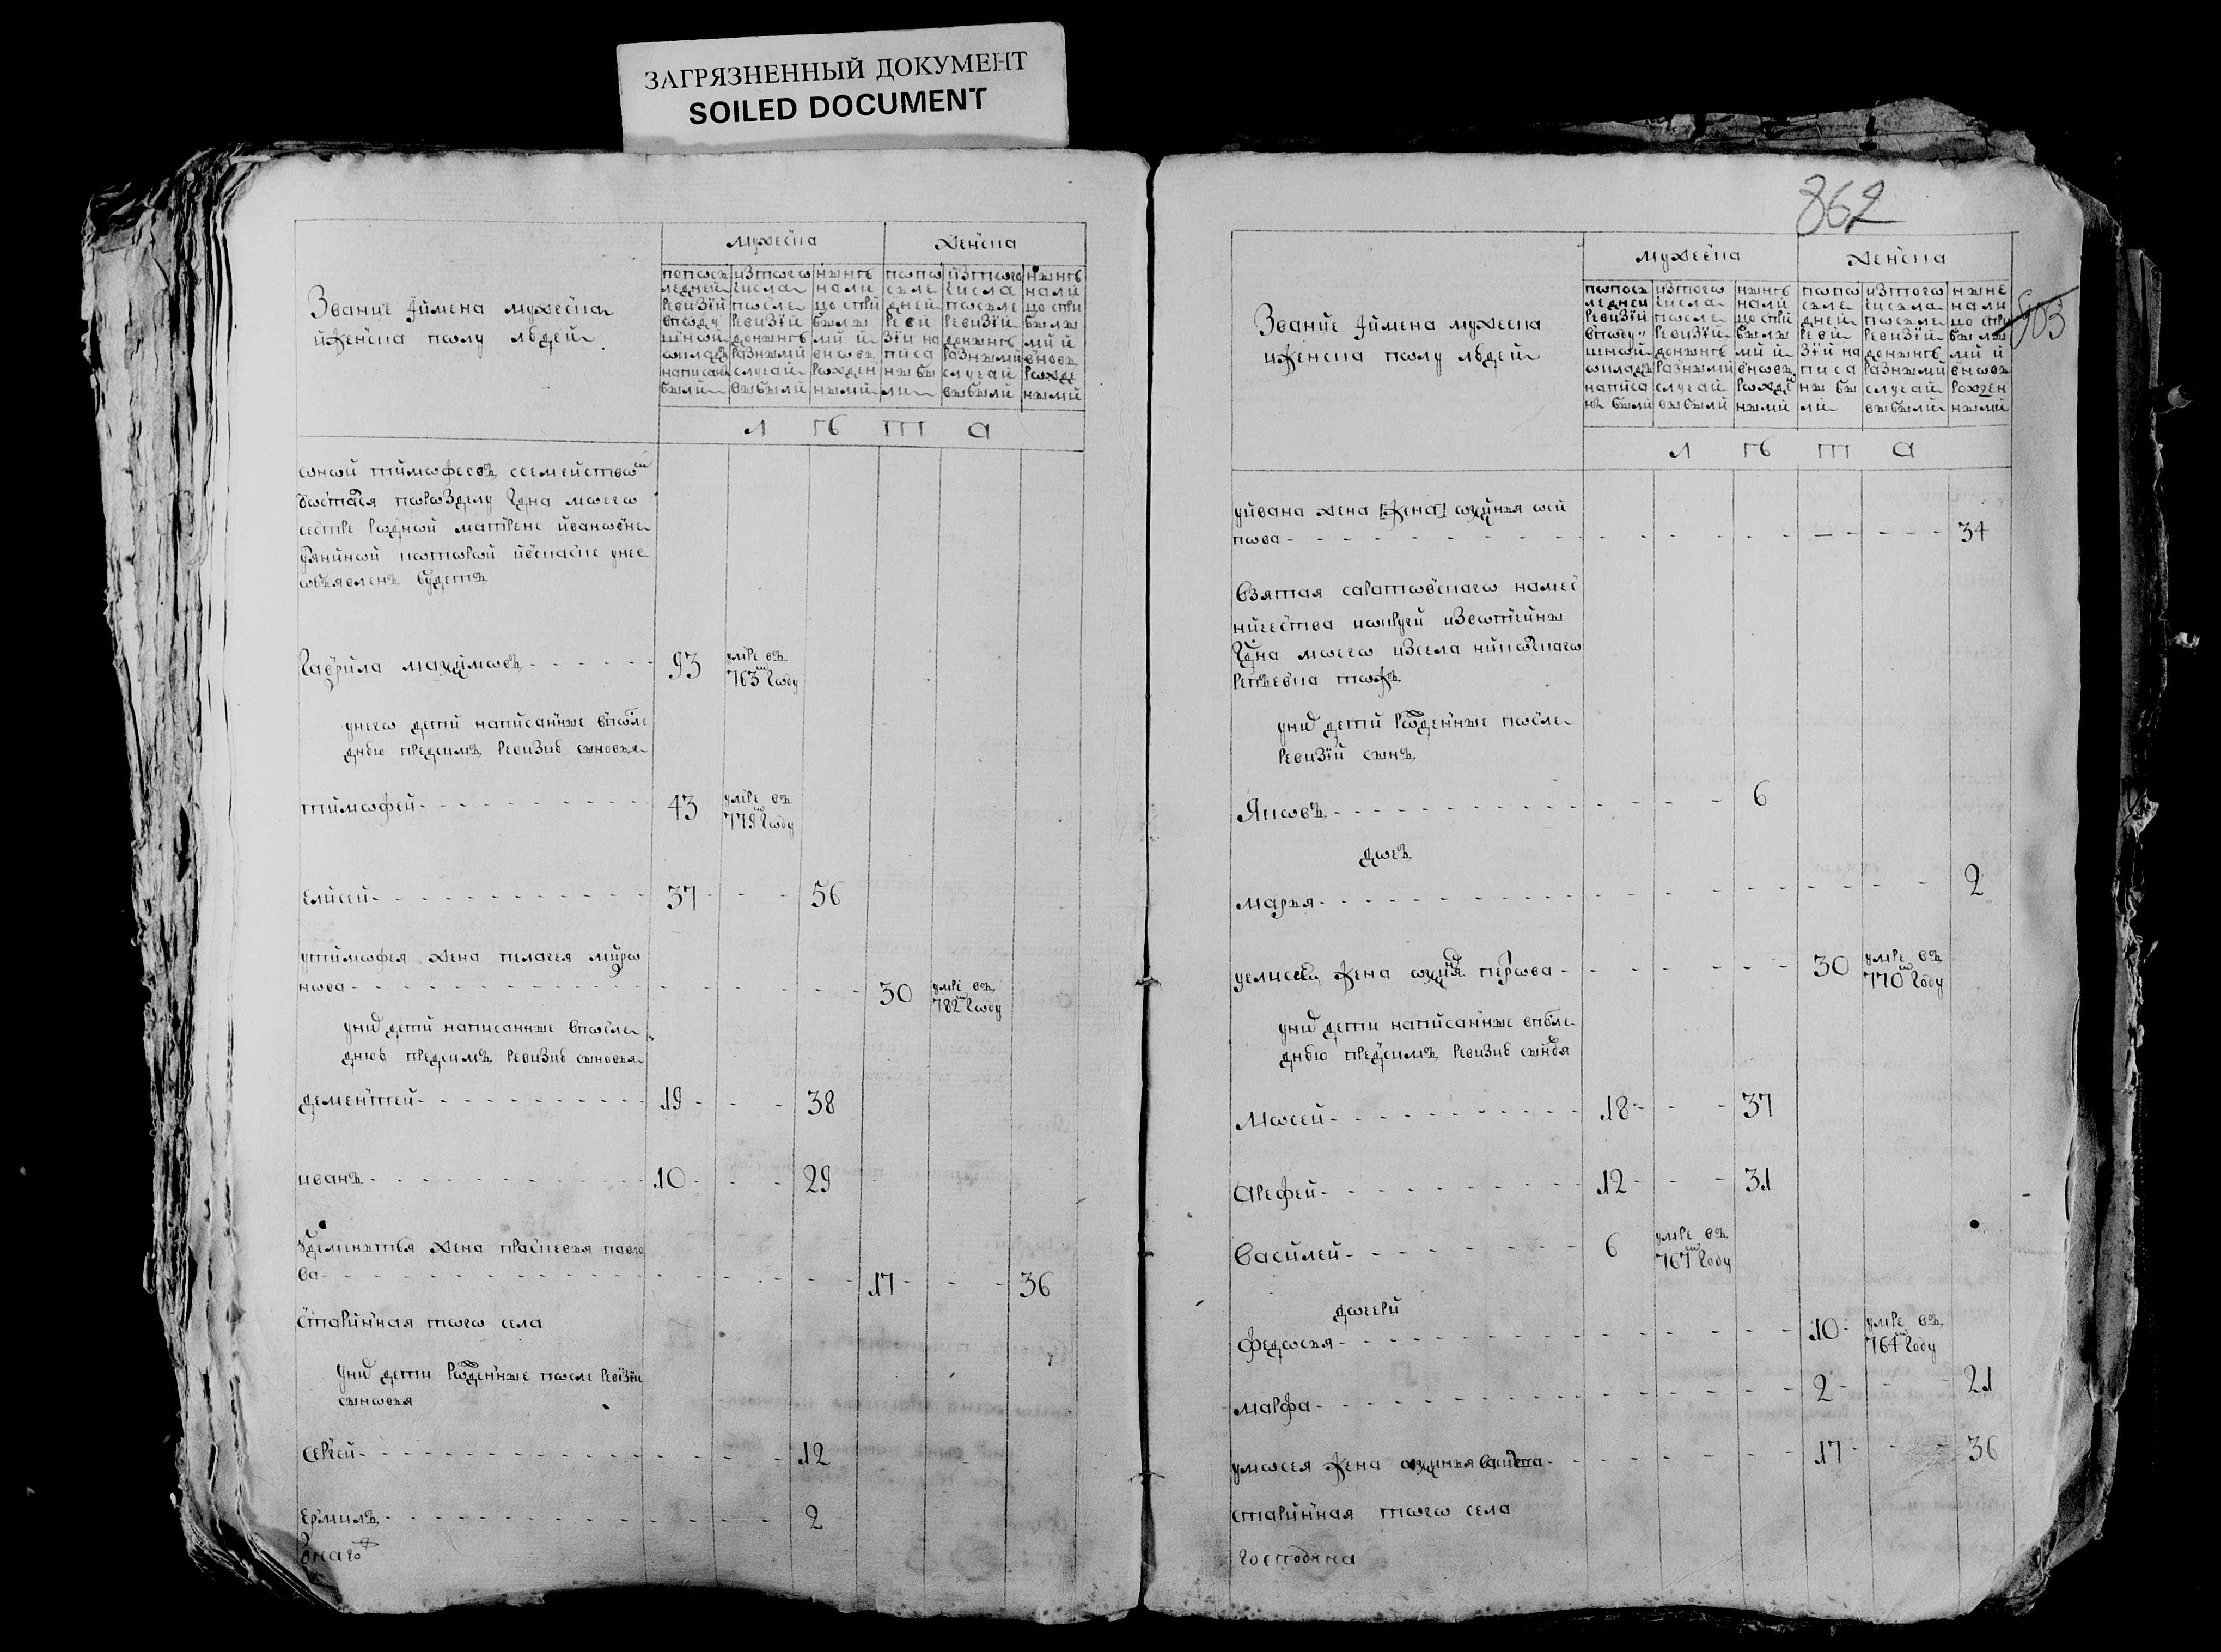 ЗАГРЯЗНЕННЫЙ ДОКУМЕНТ
SOILED DOCUMENT
Званиε и имена мужеска
и женска полу людей
мужеска
женска
по последней ревизии в поду шной окладъ написаны были
из того числа после ревизии до ныне разными случаи выбыли
ныне налицо с прибылыми и вновь рожденными
по последней ревизии написаны были
из того числа после ревизии до ныне разными случаи выбыли
ныне налицо с прибылыми и вновь рожденными
л ѣ т а
оной тимофеевъ ссемейством
достался по розделу гдна моего
сестре родной матрене ивановне
объявленъ будетъ
гаврила маѯимовъ 93 умре въ 763м году
у него дети написанные в после
днюю предсимъ ревизию сыновья
тимофей 43 умре въ 779м году
елисей 37 56
у тимофея жена пелагея миро
нова 30 умре въ 782м году
у них дети написанные в после
днюю предсимъ ревизию сыновья
дементей 19 38
иванъ 10 29
у дементья жена прасковья павло
ва 17 36
старинная того села
у них дети рожденные после ревизии
сыновья
сергей 12
ермилъ 2
онаго
862
903
Звание и имена мужеска
и женска полу людей
мужеска
женска
по последней ревизии в подушной окладъ написаны были
из того числа после ревизии до ныне разными случаи выбыли
ныне налицо с прибылыми и вновь рожденными
по последней ревизии написаны были
из того числа после ревизии до ныне разными случаи выбыли
ныне налицо с прибылыми и вновь рожденными
л ѣ т а
у ивана жена [жена] авдотья оси
пова 34
взятая саратовскаго намес
ничества из вотчины
гдна моего из села никольскаго
репьевка тожъ
у них дети рожденные после
ревизии сынъ
Яковъ 6
дочь
марья 2
у елисея жена 30 умре въ 770м году
у них дети написанные в после
днюю предсимъ ревизию сыновья
Мосей 18 37
Арефей 12 31
Василей 6 умре въ 767м году
дочери
федосья 10 умре въ 764м году
марфа 2 21
у мосея жена 17 36
старинная того села
господина